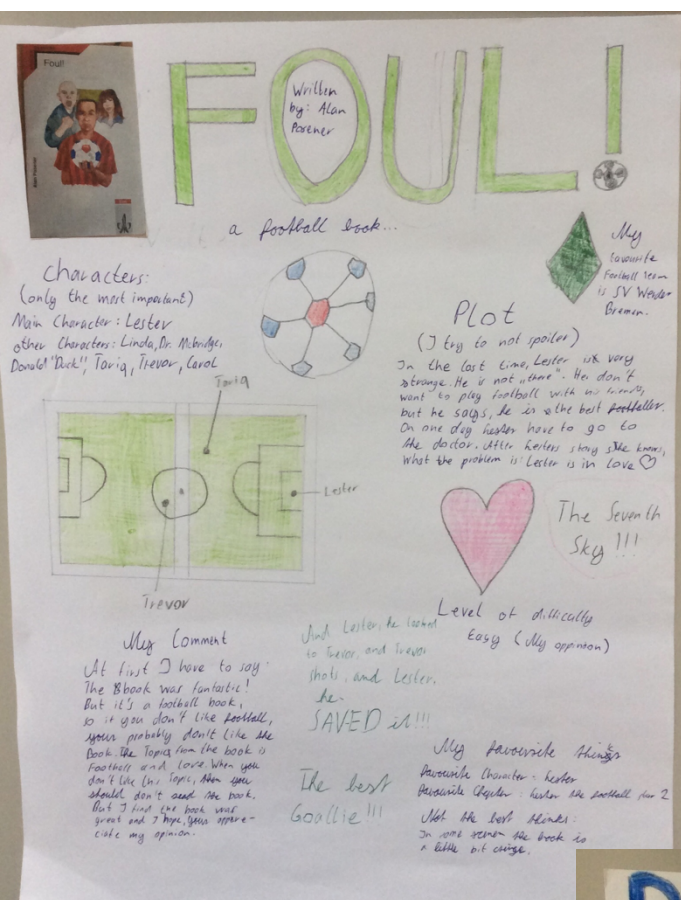 Foul!
FOUL!
Written
by: Alan
Posener
a football book...
My
favourite
Football Team
is SV Werder
Bremen.
Characters:
(only the most important)
Main Character: Lester
other Characters: Linda, Dr. McBridge,
Donald "Duck", Tariq, Trevor, Carol
Plot
(I try to not spoiler)
In the last time, Lester is very
strange. He is not "there". He don't
want to play football with his friends,
but he says, he is the best footballer.
On one day Lester have to go to
the doctor. After Lesters story she knows,
what the problem is: Lester is in love
Tariq
Lester
Trevor
The Seventh
Sky!!!
Level of difficulty
Easy (My oppinion)
My Comment
At first I have to say:
The Book was fantastic!
But it's a football book,
so if you don't like football,
your probably don't like the
Book. The Topics from the book is
Football and love. When you
don't like this Topic, then you
should don't read the book.
But I find the book was
great and I hope, your appre-
ciate my opinion.
And Lester, he looked
to Trevor, and Trevor
shots, and Lester,
he..
SAVED it!!!
The best
Goallie!!!
My favourite things
favourite Character: Lester
favourite Chapter: Lester the football star 2
Not the best thinks:
In some the book is
a little bit